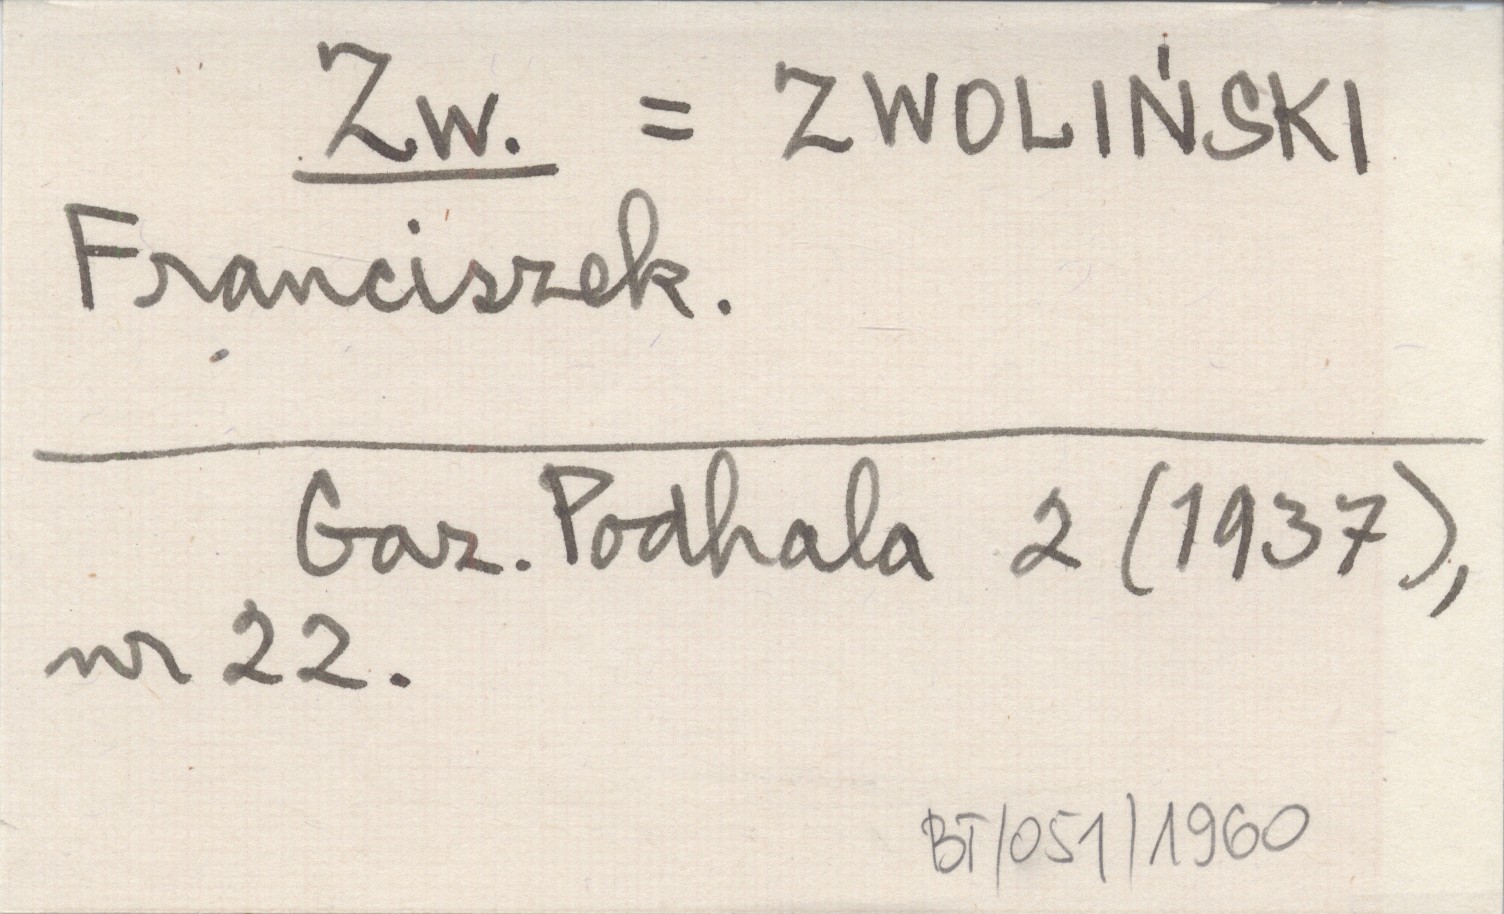 Zw. = ZWOLIŃSKI
Franciszek.
Gaz. Podhala 2 (1937),
nr 22.
BT/051/1960